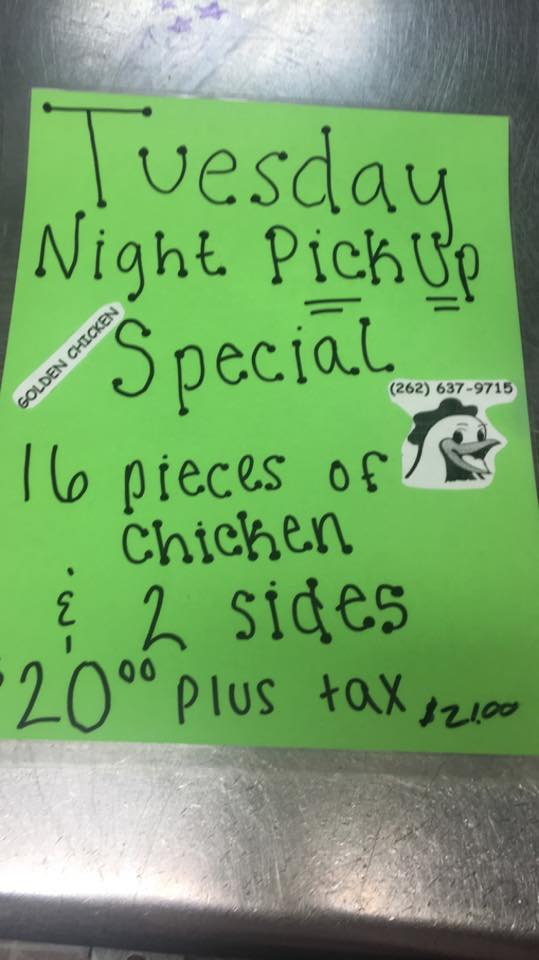 Tuesday
Night PickUp
Special
GOLDEN CHICKEN
(262) 637-9715
16 pieces of
chicken
& 2 sides
$20⁰⁰ plus tax $21.00